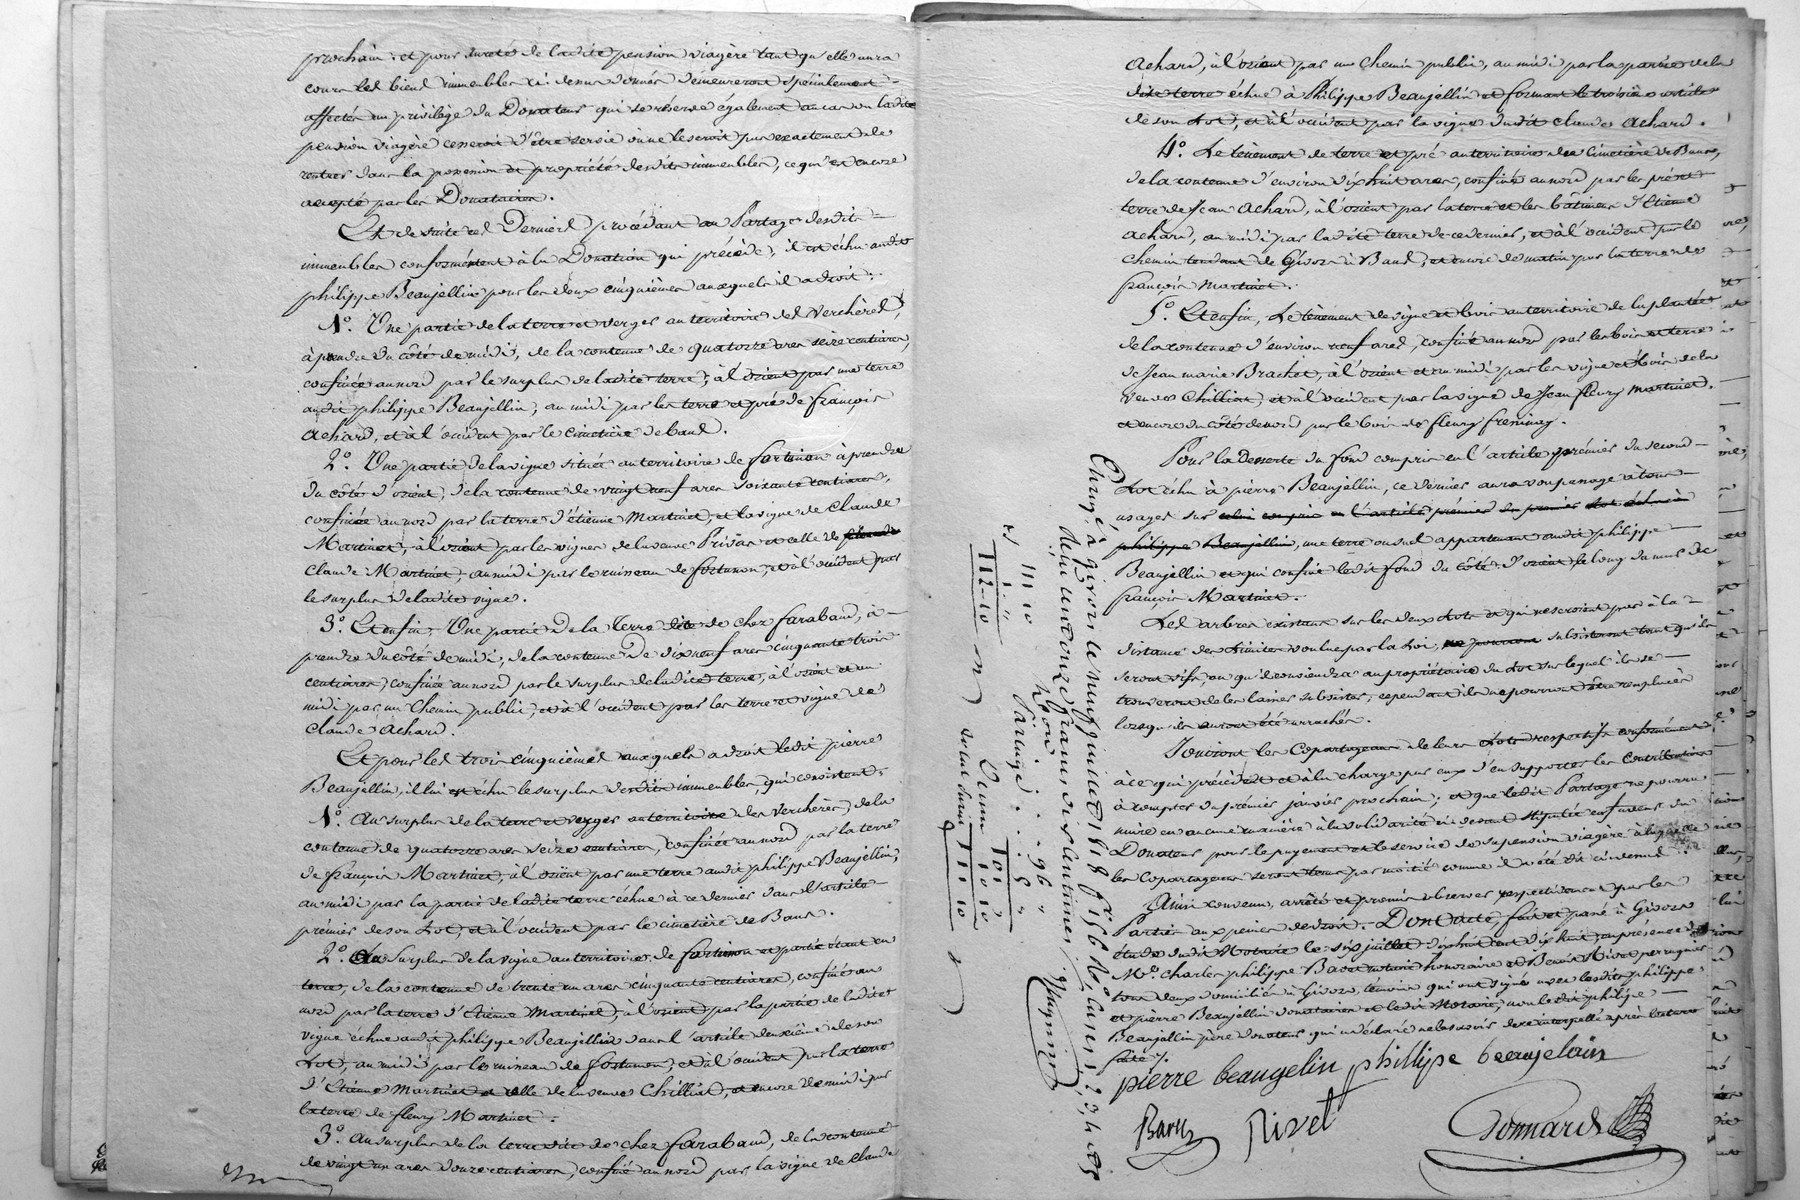 prochain. et pour sureté de ladite pension viagère tant qu'elle aura
cours les biens immeubles ci dessus donnés demeureront spécialement
affectés au privilège du Donateur qui se réserve également au cas ou ladite
pension viagère cesseroit d'être servie ou ne le seroit pas exactement de
rentrer dans la possession et propriété desdits immeubles, ce qui est encore
accepté par les Donataires.
Et de suite ces Derniers procédant au Partage desdits
immeubles conformément à la Donation qui précède, il est échu audit
philippe Beaujellin pour les deux cinquièmes auxquels il a droit:
1.° Une partie de la terre et verger au territoire des Verchères,
à prendre du côté de midi, de la contenue de quatorze ares seize centiares,
confinée au nord par le surplus de ladite terre, à l'orient par une terre
audit philippe Beaujellin, au midi par les terre et pré de françois
Achard, et à l'occident par le cimetière de bans.
2.° Une partie de la vigne située au territoire de fortunon à prendre
du côté d'orient, de la contenue de vingt neuf ares soixante centiares,
confinée au nord par la terre d'étienne Martinet, et la vigne de Claude
Martinet, à l'orient par les vignes de la veuve Privas et celle de
Claude Martinet, au midi par le ruisseau de fortunon, et à l'occident par
le surplus de ladite vigne.
3.° Et enfin, Une partie de la Terre dite de chez farabaud, à
prendre du côté de midi, de la contenue De dix neuf ares cinquante trois
centiares, confinée au nord par le surplus de ladite terre, à l'orient et au
midi par un Chemin public, et à l'occident par les terre et vigne de
Claude Achard.
Et pour les trois cinquièmes auxquels a droit ledit pierre
Beaujellin, il lui est échu le surplus desdits immeubles, qui consistent,
1.° Au surplus de la terre et verger au territoire des Verchères, de la
contenue de quatorze ares seize centiares, confinée au nord par la terre
de françois Martinet, à l'orient par une terre audit philippe Beaujellin,
au midi par la partie de ladite terre échue à ce dernier dans l'article
premier de son Lot, et à l'occident par le cimetière de Bans.
2.° Au surplus de la vigne au territoire de fortunon et partie étant en
terre, de la contenue de trente un ares cinquante centiares, confinée au
nord par la terre d'étienne Martinet, à l'orient par la partie de ladite
vigne échue audit philippe Beaujellin dans l'article deuxième de son
Lot, au midi par le ruisseau de fortunon, et à l'occident par la terre
d'étienne Martinet et celle de la veuve Chilliet, et encore de midi par
la terre de fleury Martinet.
3.° Au surplus de la terre dite de chez farabaud, de la contenue
de vingt un ares douze centiares, confiné au nord par la vigne de Claude
Achard, à l'orient par un Chemin public, au midi par la partie de la
dite terre échue à Philippe Beaujellin et formant le troisième article
de son Lot, et à l'occident par la vigne dudit claude Achard.
4.° Le tènement de terre et pré au territoire du Cimetière de Bans,
de la contenue d'environ dix huit ares, confiné au nord par les pré et
terre de Jean Achard, à l'orient par la terre et les bâtimens d'Etienne
Achard, au midi par ladite terre de ce dernier, et à l'occident par le
chemin tendant de Givors à Bans, et encore de matin par la terre de
françois Martinet.
5.° Et enfin, Le tènement de vigne et bois au territoire de la plantée
de la contenue d'environ neuf ares, confiné au nord par les bois et terre
de Jean marie Brachet, à l'orient et au midi par les vigne et bois de la
veuve Chilliet, et à l'occident par la vigne de Jean fleury Martinet.
et encore du côté de nord par le bois de fleury freminay.
Pour la Desserte du fond compris en l'article premier du second
Lot échu à pierre Beaujellin, ce dernier aura son passage à tous
usages sur celui compris en l'article premier du premier Lot échu à
philippe Beaujellin, une terre ou sol appartenant audit philippe
Beaujellin et qui confine ledit fond du côté d'orient le long du mur de
françois Martinet.
Les arbres existans sur les deux Lots et qui ne seroient pas à la
distance des Limites voulue par la Loi, subsisteront tant qu'ils
seront vifs, ou qu'il conviendra au propriétaire du Lot sur lequel ils se
trouveront de les laisser subsister, cependant ils ne pourront être remplacés
lorsqu'ils auront été arrachés.
Jouiront les Copartageans de leurs Lots respectifs conformément
à ce qui précède et à la charge par eux d'en supporter les Contributions
à compter du premier janvier prochain; et que ledit Partage ne pourra
nuire en aucune manière à la solidarité ci dessus stipulée en faveur du
Donateur pour le payement et le service de sa pension viagère à laquelle
les Copartageans seront tenus par moitié comme il a été dit ci dessus.
Ainsi convenu, arrêté et promis observer respectivement par les
Parties aux peines de droit. Dont Acte, fait et passé à Givors
étude dudit Notaire le six juillet dix huit cent dix huit, en présence de
M.rs Charles philippe Bars notaire honoraire et Benoit Rivet perruquier
tous deux domiciliés à Givors, témoins qui ont signés avec lesdits philippe
et pierre Beaujellin donataires et ledit Notaire, non ledit philippe
Beaujellin père donateur qui a déclaré ne le savoir de ce interpellé après lecture
faite./.
pierre beaugelin phillipe beaujelain
Bars Rivet Donnard
Enreg.é à givors le neuf juillet 1818 f.° 156 R.°